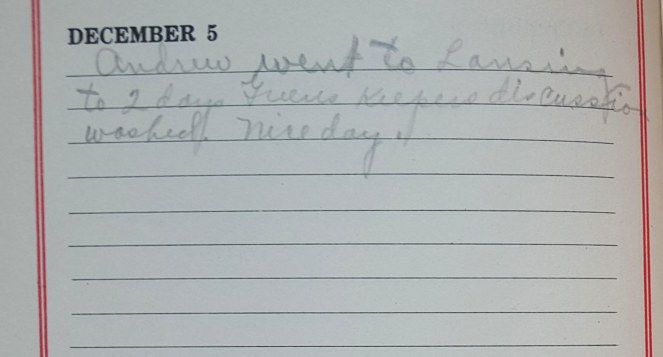 DECEMBER 5
Andrew went to Lansing
to 2 days Keepers discussion
washed. Nice day.